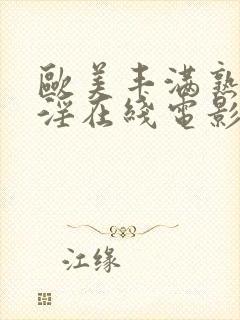 歐美丰滿熟
淫在綫電影
江缘